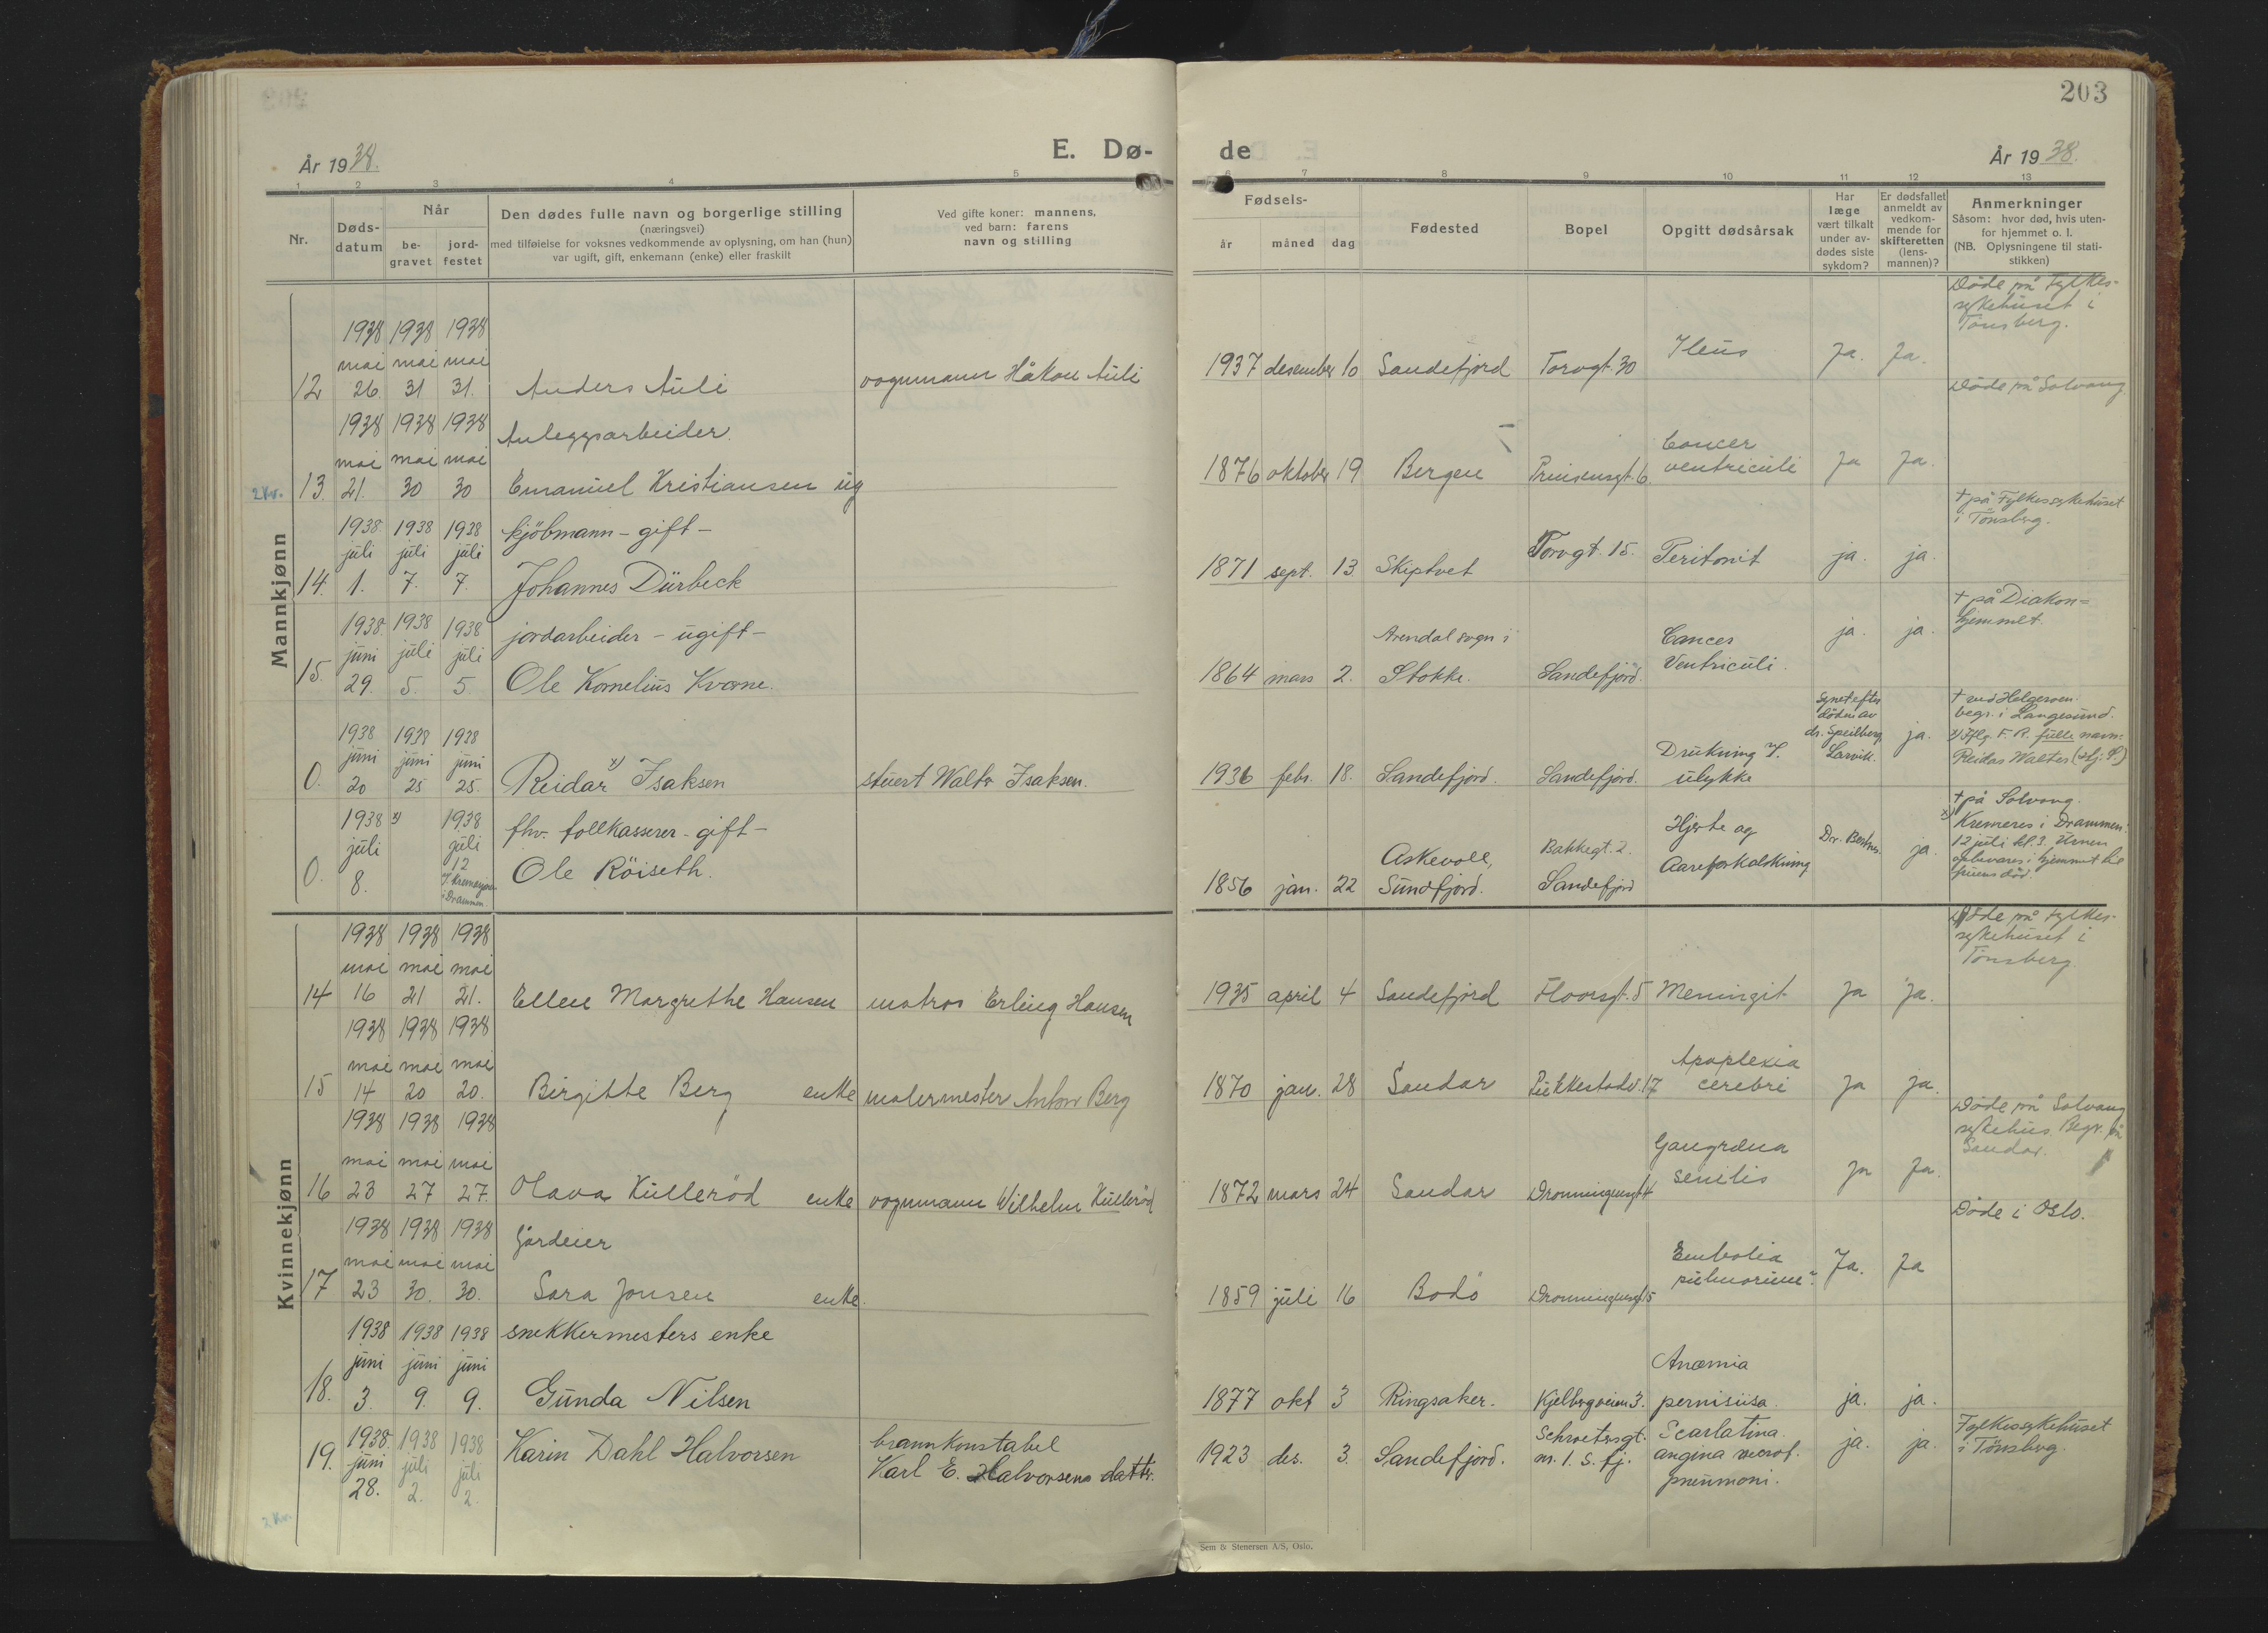 203
År 1938.
E. Dø-
de
År 1938.
1 2 3 4 5 6 7 8 9 10 11 12 13
Nr.
Døds-
datum
Når
be-
gravet
jord-
festet
Den dødes fulle navn og borgerlige stilling
(næringsvei)
med tilføielse for voksnes vedkommende av oplysning, om han (hun)
var ugift, gift, enkemann (enke) eller fraskilt
Ved gifte koner: mannens,
ved barn: farens
navn og stilling
Fødsels-
år måned dag
Fødested
Bopel
Opgitt dødsårsak
Har
læge
vært tilkalt
under av-
dødes siste
sykdom?
Er dødsfallet
anmeldt av
vedkom-
mende for
skifteretten
(lens-
mannen)?
Anmerkninger
Såsom: hvor død, hvis uten-
for hjemmet o. l.
(NB. Oplysningene til stati-
stikken)
Mannkjønn
1938 1938 1938
mai mai mai
12 26. 31 31. Anders Auli vognmann Håkon Auli 1937 desember 10 Sandefjord Torvgt. 30 Ileus Ja. Ja.
Døde på Fylkes-
sykehuset i
Tønsberg.
1938 1938 1938 Anleggsarbeider.
mai mai mai
2 Kv. 13. 21. 30 30 Emanuel Kristiansen ug 1876 oktober 19 Bergen Prinsensgt. 6. Cancer
ventriculi Ja Ja.
Døde på Solvang
1938 1938 1938 kjöbmann - gift -
juli juli juli
14. 1. 7. 7. Johannes Dürbeck 1871 sept. 13 Skiptvet Torvgt. 15. Peritonit ja. ja.
+ på Fylkessykehuset
i Tønsberg.
1938. 1938 1938 jordarbeider - ugift -
juni juli juli
15. 29. 5. 5. Ole Kornelius Kvarne. 1864 mars 2. Arendal sogn i
Stokke. Sandefjord. Cances
Ventriculi. ja. ja.
+ på Diakon=
hjemmet.
1938 1938 1938
juni juni juni
0. 20 25 25. Reidar x) Isaksen stuert Walter Isaksen. 1936 febr. 18. Sandefjord. Sandefjord. Drukning v.
ulykke
Synet efter
døden av
dr. Speilberg
Larvik. ja.
+ ved Helgeroen.
begr. i Langesund.
x) Iflg. F. R. fulle navn:
Reidar Walter
1938 x) 1938 fhv. tollkasserer - gift -
juli juli
0. 8. 12 Ole Röiseth.
v. Kremasjon
i Drammen.
1856 jan. 22 Askevoll,
Sundfjord. Bakkegt. 2.
Sandefjord Hjerte og
Aareforkalkning Dr. ja.
+ på Solvang.
x) Kremeres i Drammen
12 juli kl. 3. Urnen
opbevares i hjemmet til
fruens död.
Kvinnekjønn
1938 1938 1938
mai mai mai
14 16 21 21. Ellen Margrethe Hansen matros Erling Hansen 1935 april 4 Sandefjord Floorsgt. 5 Meningit Ja Ja.
Døde på fylkes-
sykehuset i
Tønsberg.
1938 1938 1938
mai mai mai
15 14 20 20. Birgitte Berg enke malermester Anton Berg 1870 jan. 28 Sandar Pukkestadv. 17 Apoplexia
cerebri Ja ja.
1938 1938 1938
mai mai mai
16 23 27 27. Olava Kullerød enke vognmann Wilhelm Kullerød 1872 mars 24 Sandar Dronningensgt 4 Gangræna
senilis Ja Ja.
Døde på Solvang
sykehus. Begr. på
Sandar.
1938 1938 1938 Gårdeier
mai mai mai
17 23 30. 30. Sara Jonsen enke. 1859 juli 16 Bodö Dronningensgt 15 Embolia
pulmorium. Ja. Ja
Døde i Oslo.
1938 1938 1938 snekkermesters enke
juni juni juni
18. 3. 9. 9. Gunda Nilsen 1877 okt 3 Ringsaker. Kjelbergveien 3. Anæmia
pernisiisa. ja. ja.
1938. 1938 1938
19. juni juli juli Karin Dahl Halvorsen
28. 2. 2.
brannkonstabel
Karl E. Halvorsens datter.
1923 des. 3. Sandefjord. Schroetersgt.
nr. 1. S. fj. Scarlatina.
angina necrot.
pneumoni. ja. ja.
Fylkessykehuset
i Tønsberg.
2 Kv.
Sem & Stenersen A/S, Oslo.